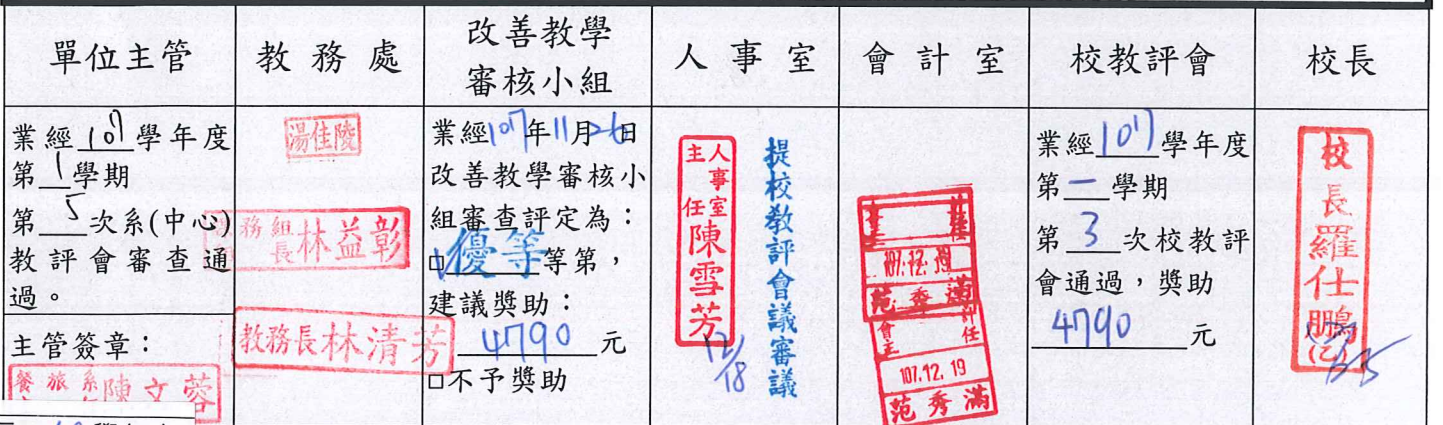 單位主管
教務處
改善教學
審核小組
人事室
會計室
校教評會
校長
業經107學年度
第1學期
第5次系(中心)
教評會審查通
過。
主管簽章：
餐旅系
陳文蓉
湯佳陵
務組
長林益彰
教務長林清芳
業經107年11月26日
改善教學審核小
組審查評定為：
□優等等第，
建議獎助：
4790元
□不予獎助
人事室
主任陳雪芳
12/18
提校教評會議審議
107.12.19
范秀滿
會計
主任
107.12.19
范秀滿
業經107學年度
第一學期
第3次校教評
會通過，獎助
4790元
校長羅仕鵬